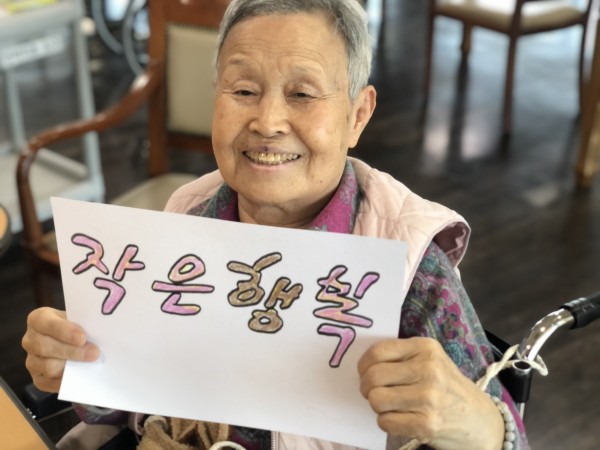 작은 행복